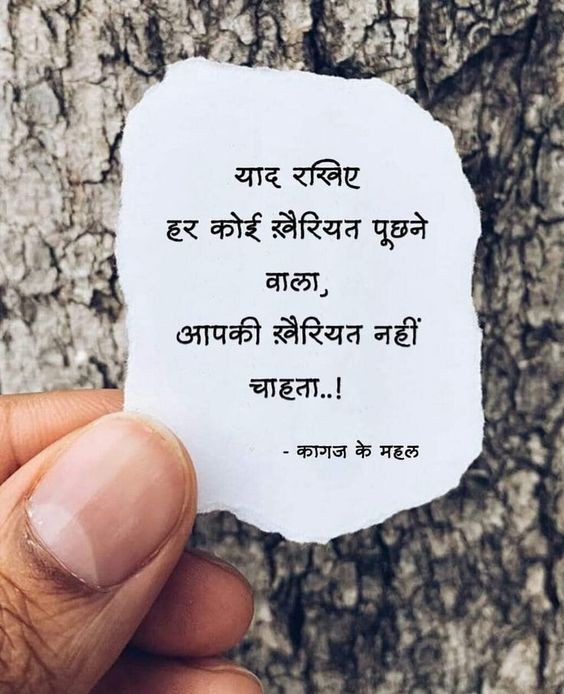 याद रखिए
हर कोई ख़ैरियत पूछने
वाला,
आपकी ख़ैरियत नहीं
चाहता..!
- कागज के महल